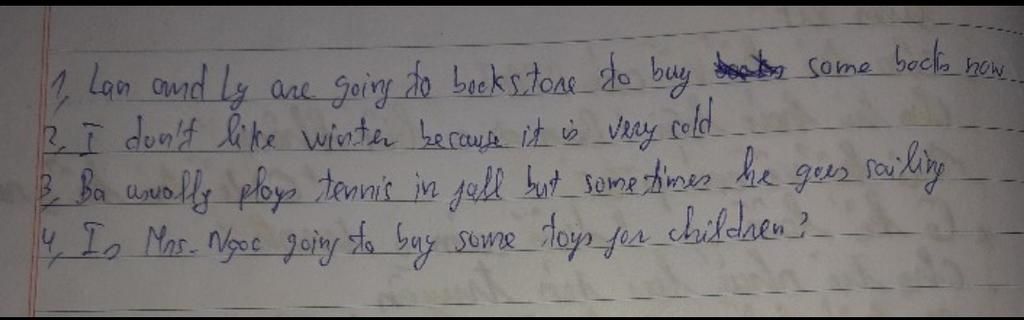 1, Lan and Ly are going to bookstore to buy some books now
2, I don't like winter because it is very cold
3, Ba usually plays tennis in fall but sometimes he goes sailing
4, Is Mrs. Ngoc going to buy some toys for children?